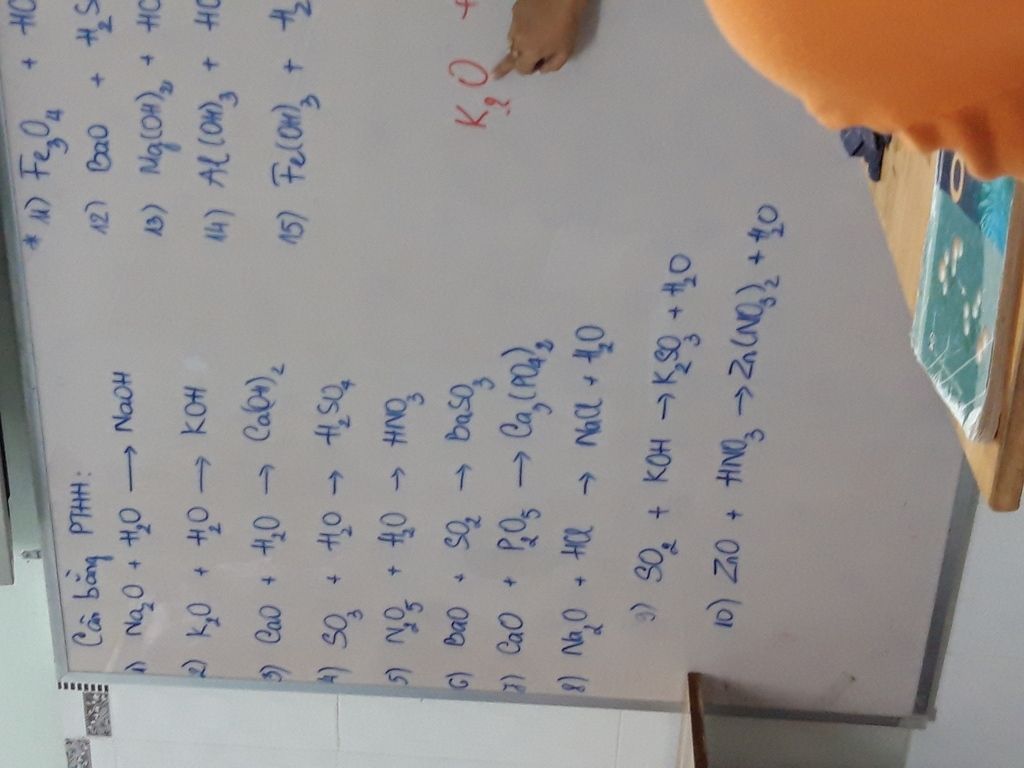 Cân bằng PTHH:
1) Na₂O + H₂O → NaOH
2) K₂O + H₂O → KOH
3) CaO + H₂O → Ca(OH)₂
4) SO₃ + H₂O → H₂SO₄
5) N₂O₅ + H₂O → HNO₃
6) BaO + SO₂ → BaSO₃
7) CaO + P₂O₅ → Ca₃(PO₄)₂
8) Na₂O + HCl → NaCl + H₂O
9) SO₂ + KOH → K₂SO₃ + H₂O
10) ZnO + HNO₃ → Zn(NO₃)₂ + H₂O
* 11) Fe₃O₄ + HC
12) BaO + H₂S
13) Mg(OH)₂ + HC
14) Al(OH)₃ + HC
15) Fe(OH)₃ + H₂
K₂O +